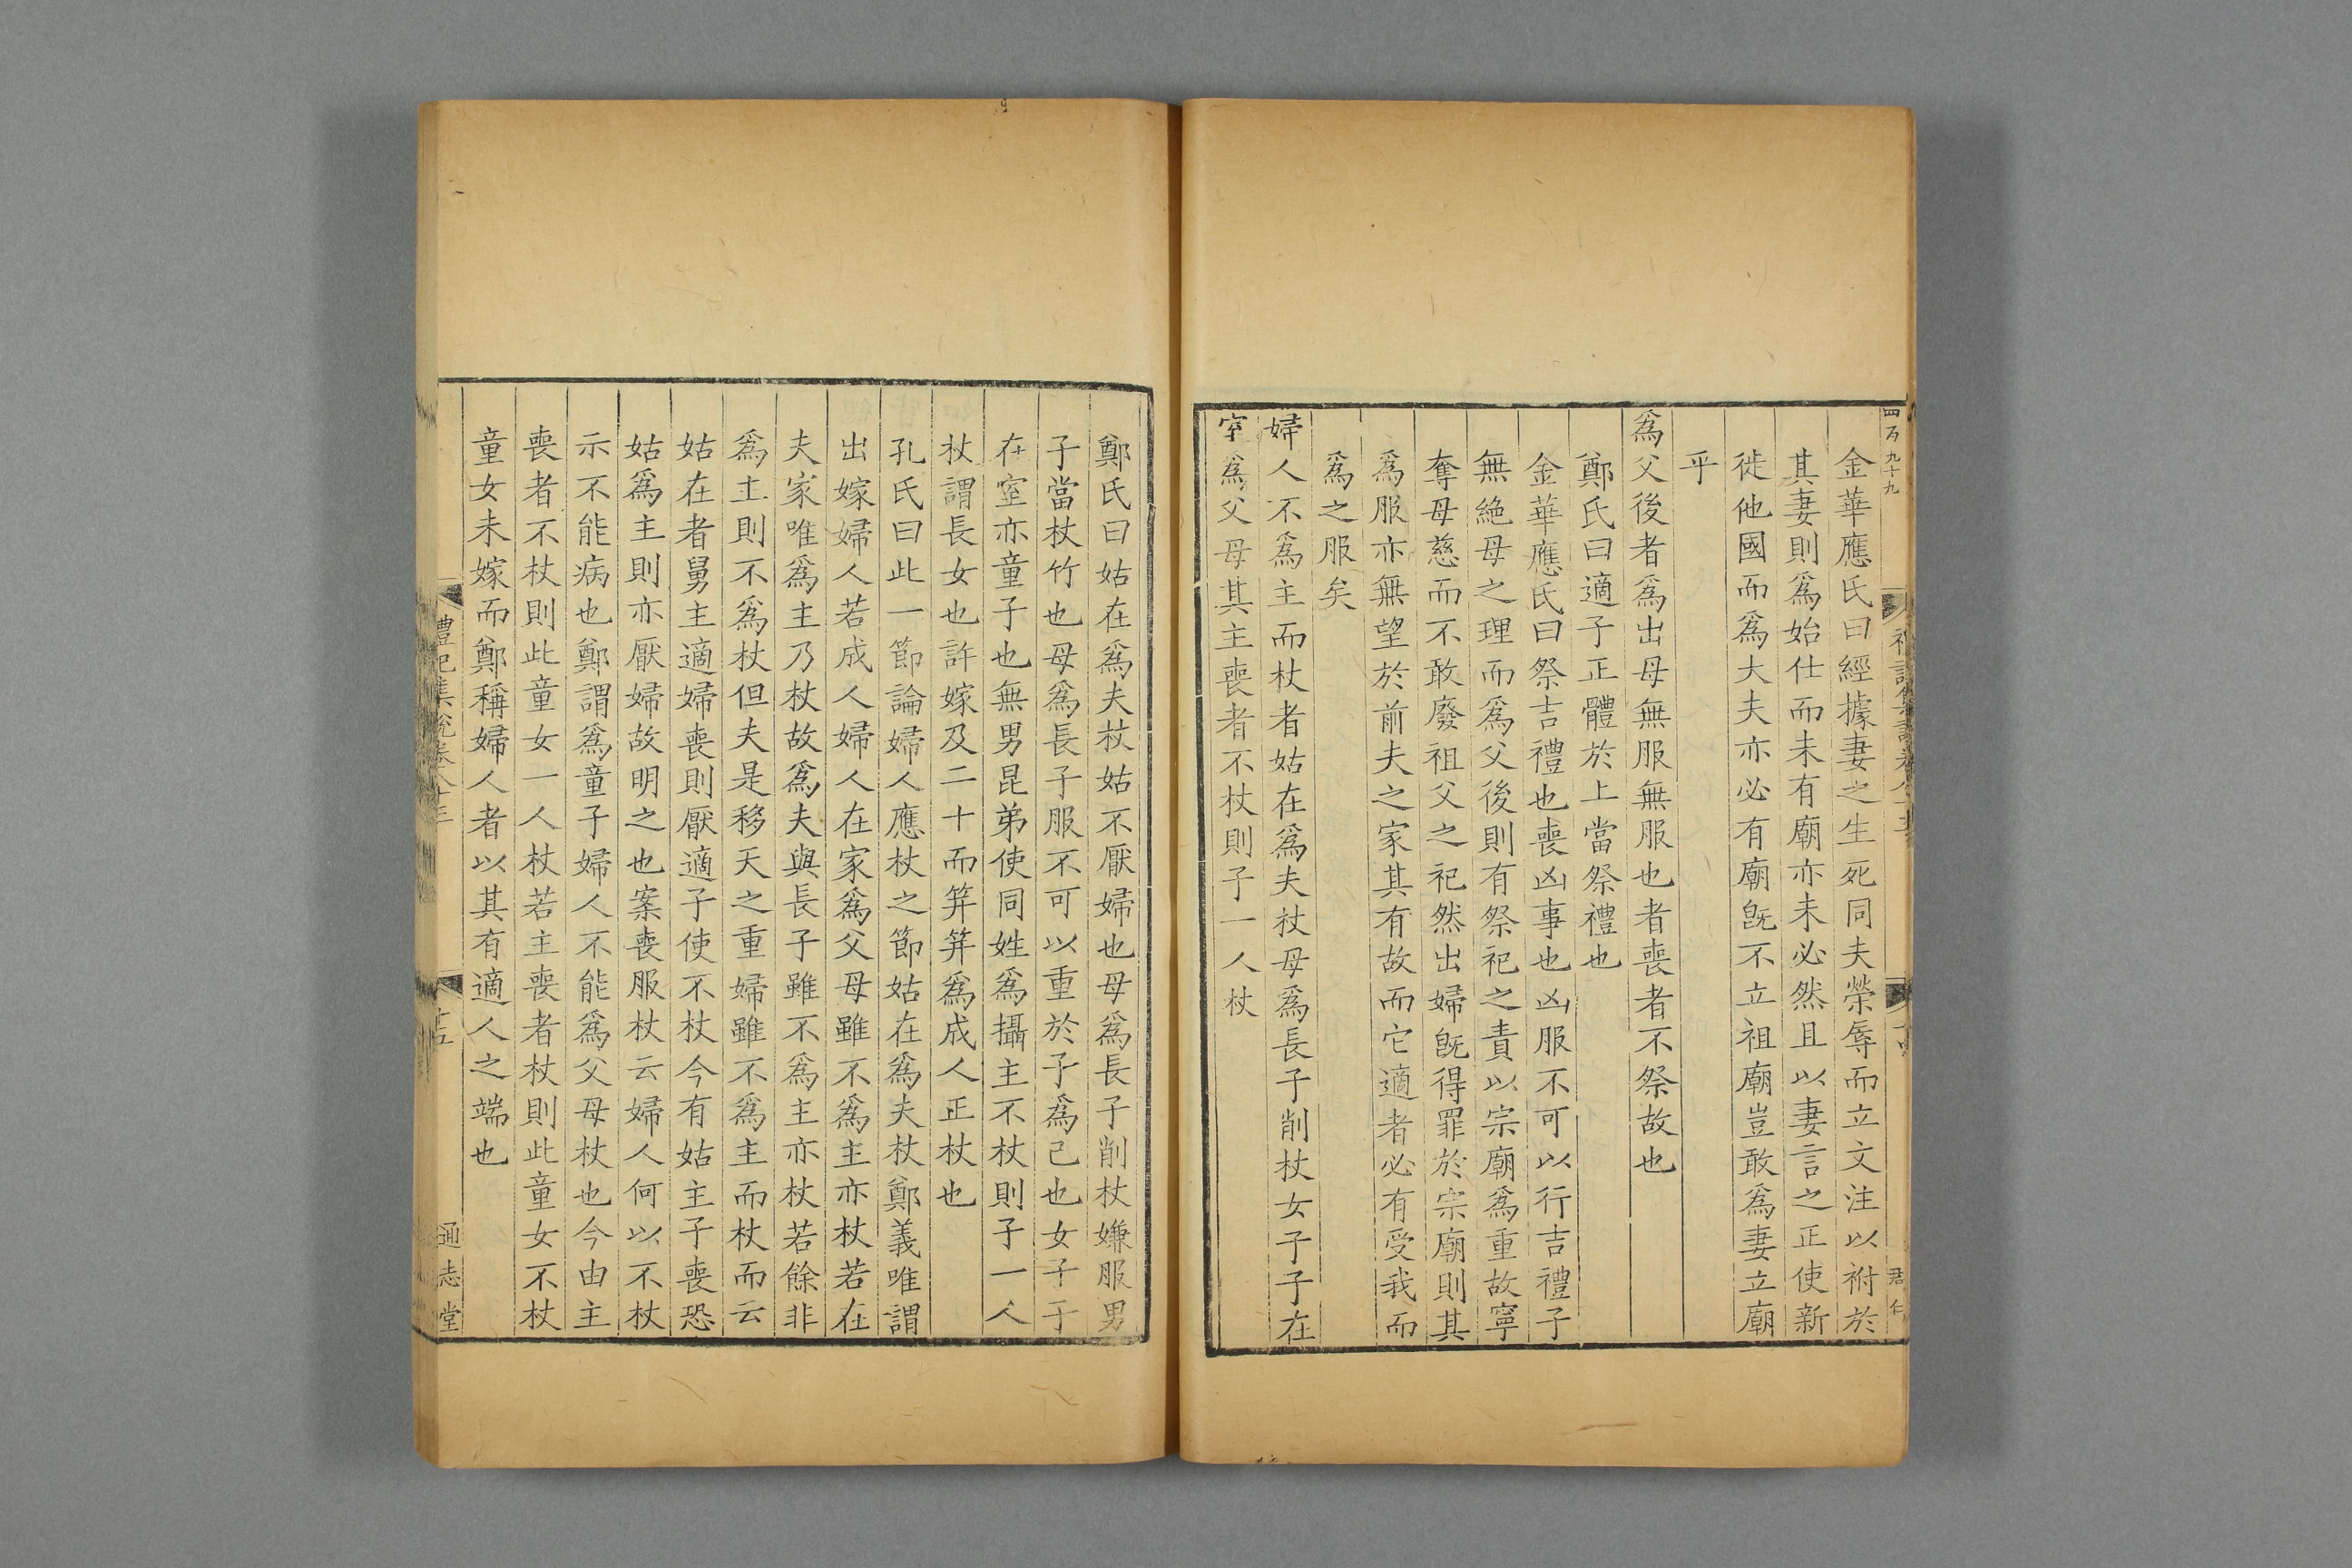 四百九十九
君仁
金華應氏曰經據妻之生死同夫榮辱而立文注以祔於
其妻則爲始仕而未有廟亦未必然且以妻言之正使新
徙他國而爲大夫亦必有廟旣不立祖廟豈敢爲妻立廟
乎
爲父後者爲出母無服無服也者喪者不祭故也
鄭氏曰適子正體於上當祭禮也
金華應氏曰祭吉禮也喪凶事也凶服不可以行吉禮子
無絶母之理而爲父後則有祭祀之責以宗廟爲重故寧
奪母慈而不敢廢祖父之祀然出婦旣得罪於宗廟則其
爲服亦無望於前夫之家其有故而它適者必有受我而
爲之服矣
婦人不爲主而杖者姑在爲夫杖母爲長子削杖女子子在
室爲父母其主喪者不杖則子一人杖
鄭氏曰姑在爲夫杖姑不厭婦也母爲長子削杖嫌服男
子當杖竹也母爲長子服不可以重於子爲己也女子子
在室亦童子也無男昆弟使同姓爲攝主不杖則子一人
杖謂長女也許嫁及二十而筓筓爲成人正杖也
孔氏曰此一節論婦人應杖之節姑在爲夫杖鄭義唯謂
出嫁婦人若成人婦人在家爲父母雖不爲主亦杖若在
夫家唯爲主乃杖故爲夫與長子雖不爲主亦杖若餘非
爲主則不爲杖但夫是移天之重婦雖不爲主而杖而云
姑在者舅主適婦喪則厭適子使不杖今有姑主子喪恐
姑爲主則亦厭婦故明之也案喪服杖云婦人何以不杖
示不能病也鄭謂爲童子婦人不能爲父母杖也今由主
喪者不杖則此童女一人杖若主喪者杖則此童女不杖
童女未嫁而鄭稱婦人者以其有適人之端也
禮記集說卷八十三
通志堂